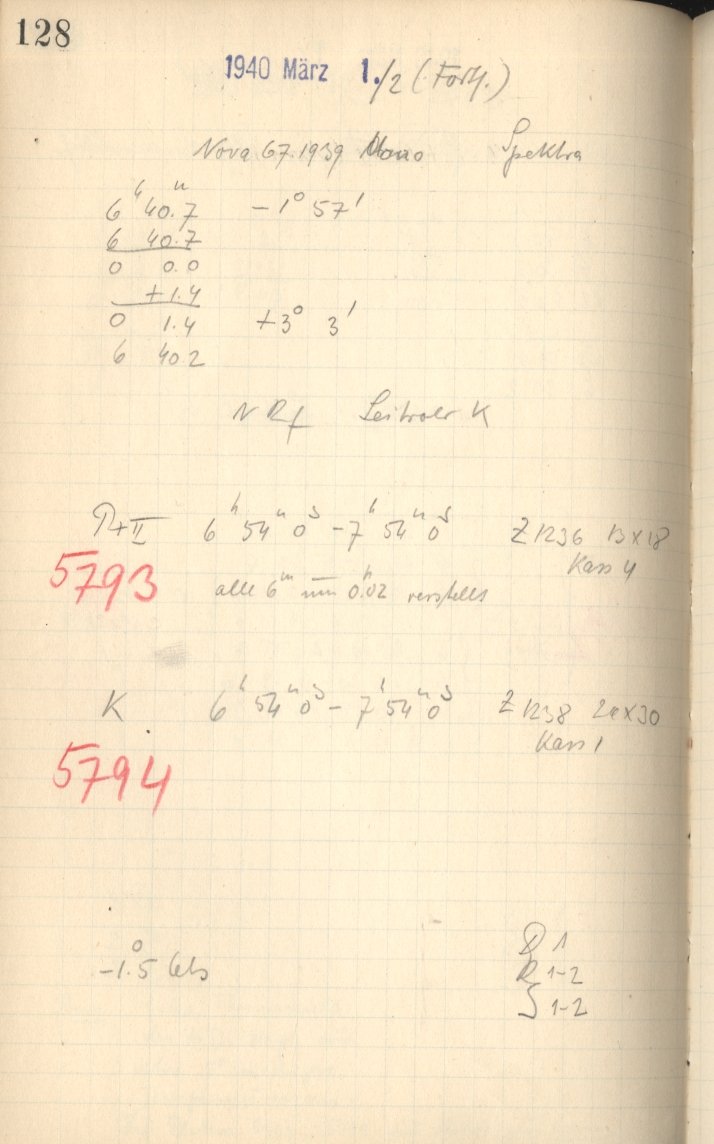 128
1940 März 1./2 (Forts.)
Nova 67.1939 Mono Spektra
6ʰ 40.7ᵐ −1° 57'
6 40.7
0 0.0
+1.4
0 1.4 +3° 3'
6 40.2
Leitrohr K
6ʰ 54ᵐ 0ˢ − 7ʰ 54ᵐ 0ˢ Z 1236 13×18
Kass 4
5793
alle 6ᵐ um 0.02 verstellt
K 6ʰ 54ᵐ 0ˢ − 7ʰ 54ᵐ 0ˢ Z 1238 24×30
Kass 1
5794
−1.5° Cels
D 1
R 1-2
S 1-2